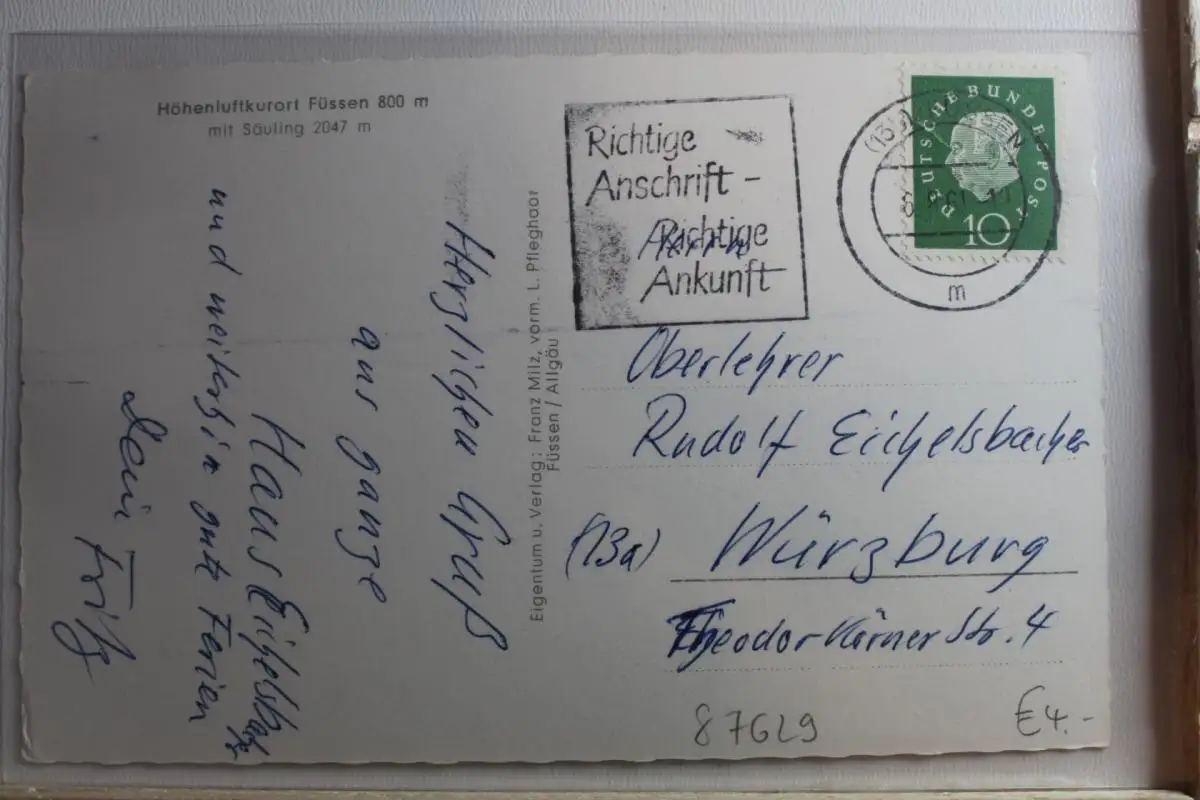 Höhenluftkurort Füssen 800 m
mit Säuling 2047 m
Herzlichen Gruß
ans ganze
Haus Eichelsbacher
und weiterhin gute Ferien
Dein Fritz
Eigentum u. Verlag: Franz Milz, vorm. L. Pfleghaar
Füssen / Allgäu
Richtige
Anschrift –
Richtige
Ankunft
Herrn
DEUTSCHE BUNDESPOST
10
m
Oberlehrer
Rudolf Eichelsbacher
(13a) Würzburg
Theodor Körner Str. 4
87629
€ 4.-